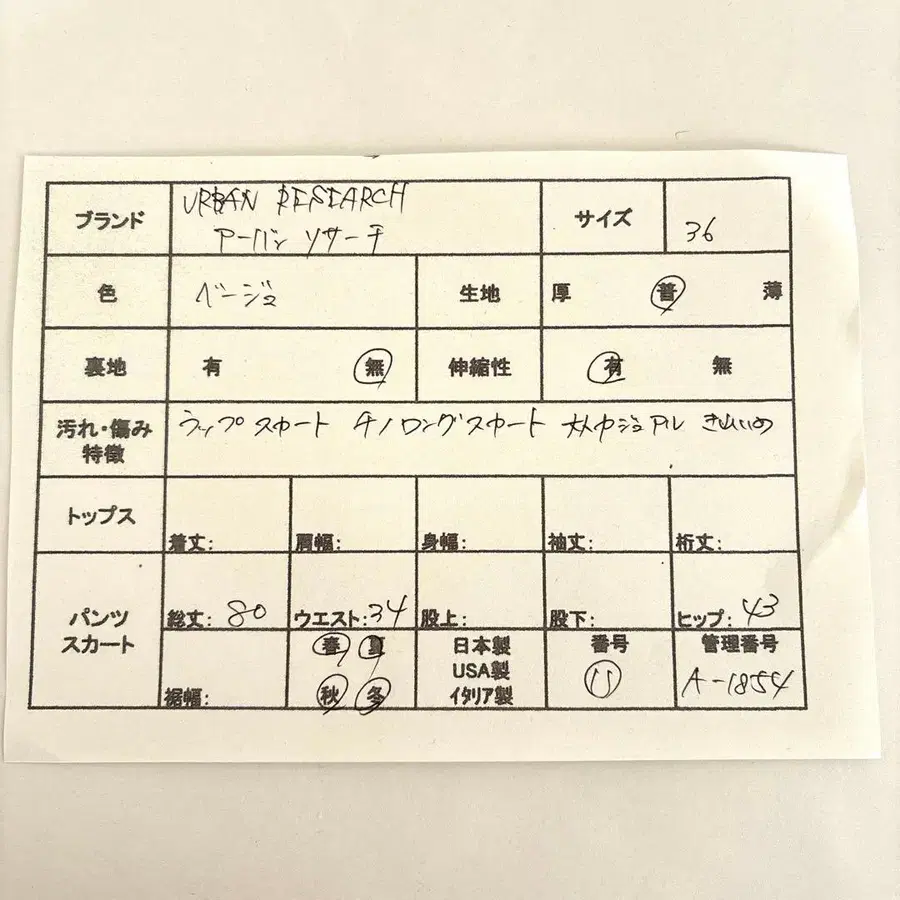 ブランド URBAN RESEARCH サイズ 36
アーバン リサーチ
色 ベージュ 生地 厚 普 薄
裏地 有 無 伸縮性 有 無
汚れ・傷み ラップスカート チノロングスカート カジュアル きれいめ
特徴
トップス 着丈: 肩幅: 身幅: 袖丈: 裄丈:
パンツ 総丈: 80 ウエスト: 34 股上: 股下: ヒップ: 43
スカート 裾幅: 春 夏 日本製 番号 管理番号
USA製
秋 冬 イタリア製 11 A-1854